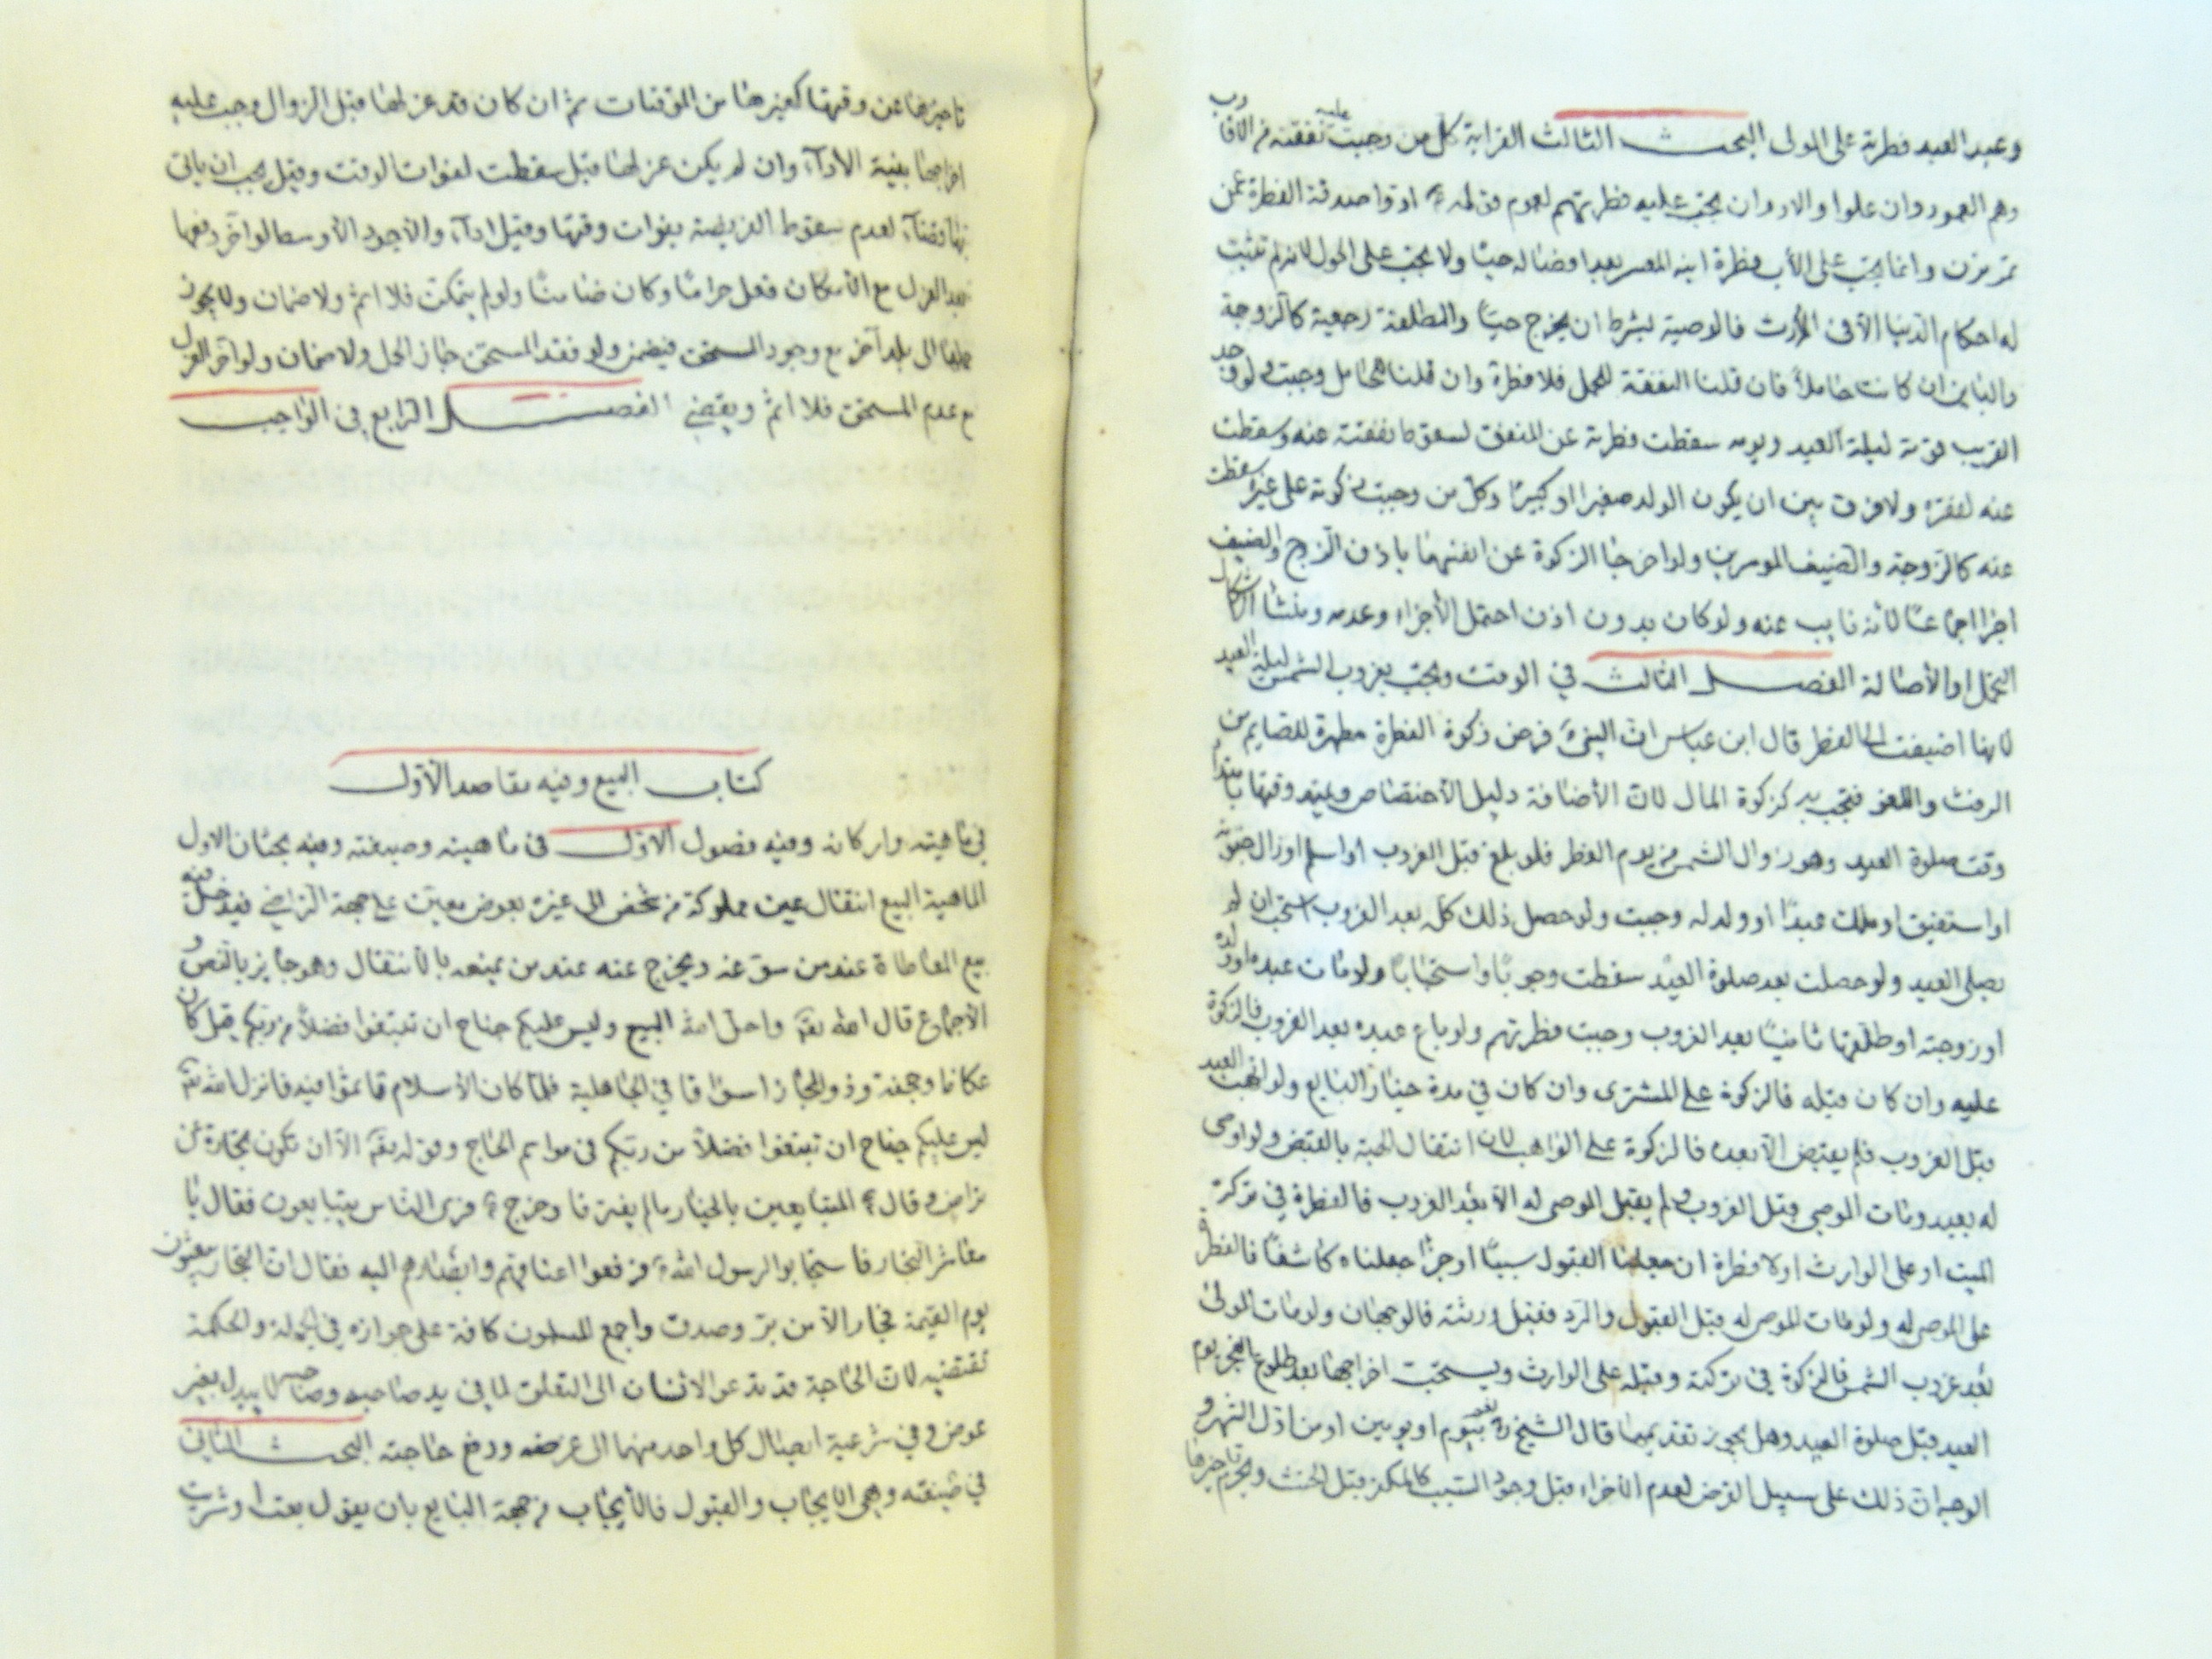 وعبد العبد فطرته على المولى البحث الثالث القرابة كل من وجبت عليه نفقته من الأقارب
وهم العمودان علوا والاولاد يجب عليه فطرتهم لعموم قوله ادوا صدقة الفطرة عن
تمونون وانما يجب على الأب فطرة ابنه المعسر بعد انفصاله حيا ولا يجب على الحمل لانه لم تثبت
له احكام الدنيا الأفى الإرث فالوصية بشرط ان يخرج حيًا والمطلقة رجعية كالزوجة
والباين ان كانت حاملاً فان قلنا النفقة للحمل فلا فطرة وان قلنا للحامل وجبت ولو وجد
القريب قوته ليلة العيد ويومه سقطت فطرته عن المنفق لسقوط نفقته عنه وسقطت
عنه لفقره ولا فرق بين ان يكون الولد صغيرا او كبيرًا وكل من وجبت زكوته على غيره سقطت
عنه كالزوجة والضيف الموسرين ولو اخرجا الزكوة عن انفسهما باذن الزوج والضيف
اجزا اجماعًا لأنه نايب عنه ولو كان بدون اذن احتمل الأجزاء وعدمه ومنشأ الاشكال
التحمل او الأصالة الفصل الثالث في الوقت وتجب بغروب الشمس ليلة العيد
لانها اضيفت الى الفطر قال ابن عباس ان النبي فرض زكوة الفطرة مطهرة للصايم من
الرفث واللغو فتجب به كزكوة المال لان الأضافة دليل الأختصاص ويمتد وقتها بامتداد
وقت صلوة العيد وهو زوال الشمس من يوم الفطر فلو بلغ قبل الغروب او اسلم او زال جنونه
او استفيق او ملك عبدًا او ولد له وجبت ولو حصل ذلك كله بعد الغروب استحب ان لم
يصلى العيد ولو حصلت بعد صلوة العيد سقطت وجوبًا واستحبابًا ولو مات عبده او ولده
او زوجته او طلقها ثانيًا بعد الغروب وجبت فطرتهم ولو باع عبده بعد الغروب فالزكوة
عليه وان كان قبله فالزكوة على المشترى وان كان في مدة خيار البايع ولو اتهب العبد
قبل الغروب فلم يقبض الا بعده فالزكوة على الواهب لان انتقال الهبة بالقبض ولو اوصى
له بعبد ومات الموصى قبل الغروب ولم يقبل الموصى له الا بعد الغروب فالفطرة في تركة
الميت او على الوارث او لا فطرة ان جعلنا القبول سببًا او جزأ جعلناه كاشفًا فالفطرة
على الموصى له ولو مات الموصى له قبل القبول والرد فقبل ورثته فالوجهان ولو مات المولى
بعد غروب الشمس فالزكوة في تركته وقبله على الوارث ويستحب اخراجها بعد طلوع الفجر يوم
العيد قبل صلوة العيد وهل يجوز تقديمها قال الشيخ ره نعم بيوم او يومين او من اول الشهر و
الوجه ان ذلك على سبيل القرض لعدم الأجزاء قبل وجود السبب كالمكفر قبل الحنث ويحرم تاخيرها
تاخيرها عن وقتها كغيرها من الموقتات ثم ان كان قد عزلها قبل الزوال وجب عليه
اخراجها بنية الأداء وان لم يكن عزلها قبل سقطت لفوات الوقت وقيل يجب ان ياتى
بها قضاء لعدم سقوط الفريضة بفوات وقتها وقيل اداء والأجود الأوسط ولو اخر دفعها
بعد العزل مع الأمكان فعل حرامًا وكان ضامنًا ولو لم يتمكن فلا اثم ولا ضمان ولا يجوز
حملها الى بلد آخر مع وجود المستحق فيضمن ولو فقد المستحق جاز الحمل ولا ضمان ولو اخر العزل
مع عدم المستحق فلا اثم ويقضى الفصل الرابع في الواجب
كتاب البيع وفيه مقاصد الأول
في ماهيته واركانه وفيه فصول الاول فى ماهيته وصيغته وفيه بحثان الاول
الماهية البيع انتقال عين مملوكة من شخص الى غيره بعوض معين على جهة التراضى فيدخل فيه
بيع المعاطاة عند من سوغه ويخرج عنه عند من يمنعه بالأنتقال وهو جايز بالنص و
الأجماع قال الله تعالى واحل الله البيع وليس عليكم جناح ان تبتغوا فضلاً من ربكم قيل كان
عكاظ ومجنة وذو المجاز اسواقا في الجاهلية فلما كان الأسلام تاثموا فيه فانزل الله تعالى
ليس عليكم جناح ان تبتغوا فضلاً من ربكم فى مواسم الحاج وقوله تعالى الا ان تكون تجارة عن
تراض وقال المتبايعين بالخيار ما لم يفترقا وخرج فرى الناس يتبايعون فقال يا
معاشر التجار فاستجابوا لرسول الله فرفعوا اعناقهم وابصارهم اليه فقال ان التجار يبعثون
يوم القيمة فجار الا من بر وصدق واجمع المسلمون كافة على جوازه في الجملة والحكمة
تقتضيه لان الحاجة قد تدعو الانسان الى التعلق لما في يد صاحبه وصاحبه لا يبدل بغير
عوض وفي شرعية ايصال كل واحد منهما الى غرضه ودفع حاجته البحث الثاني
في صيغته وهى الايجاب والقبول فالأيجاب من جهة البايع بان يقول بعت او شريت